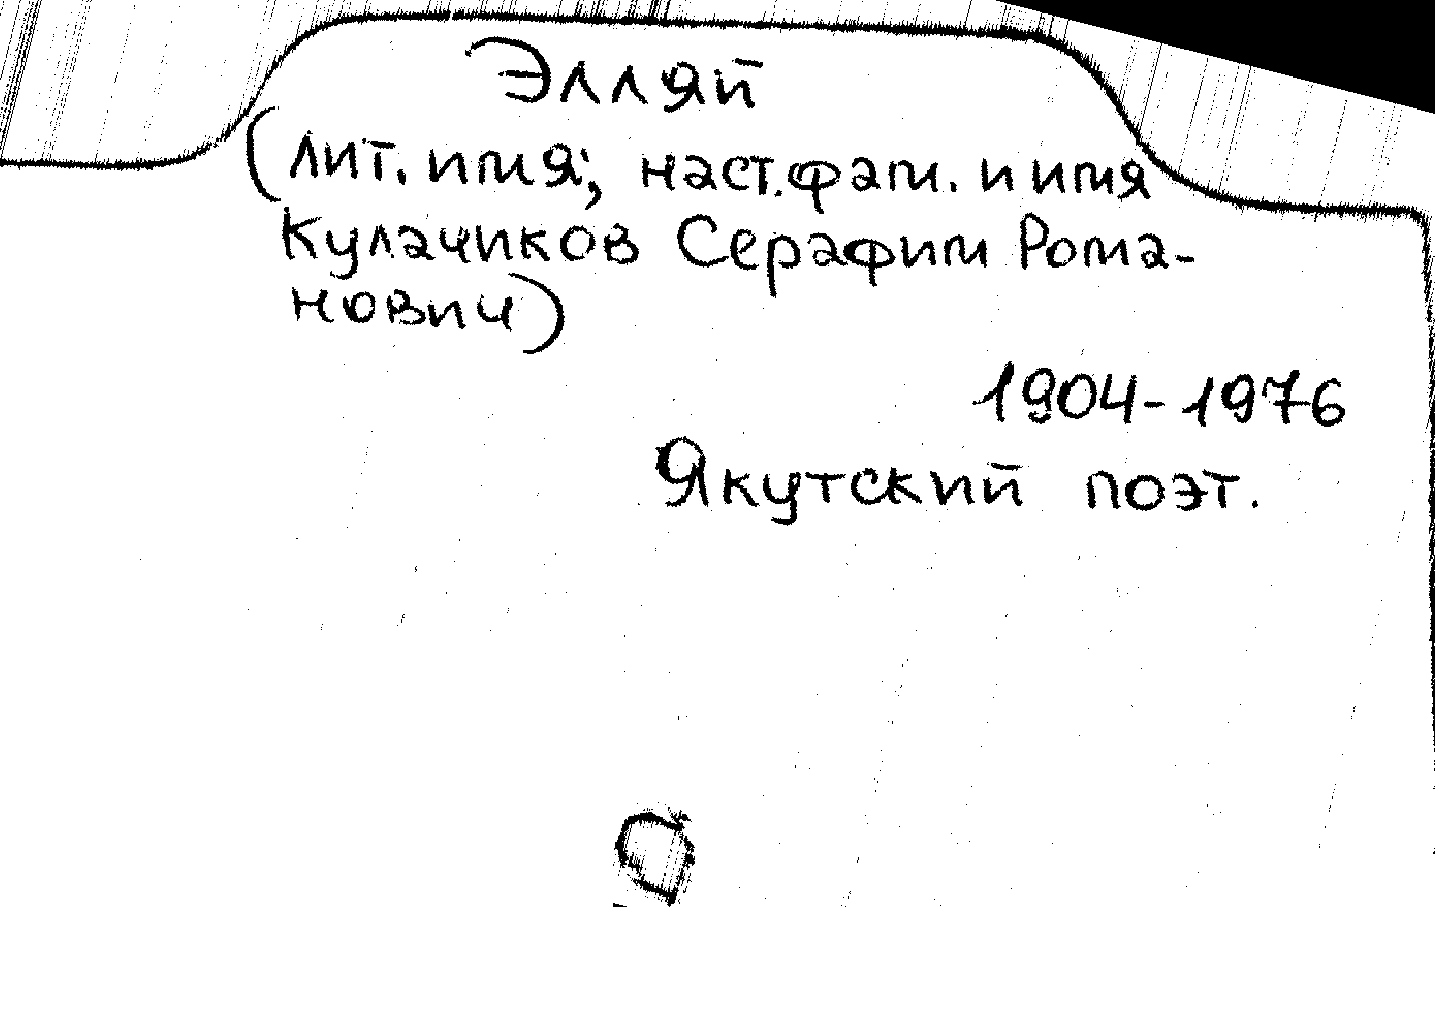 Элляй
(лит. имя; наст. фам. и имя
Кулачиков Серафим Рома-
нович)
1904-1976
Якутский поэт.